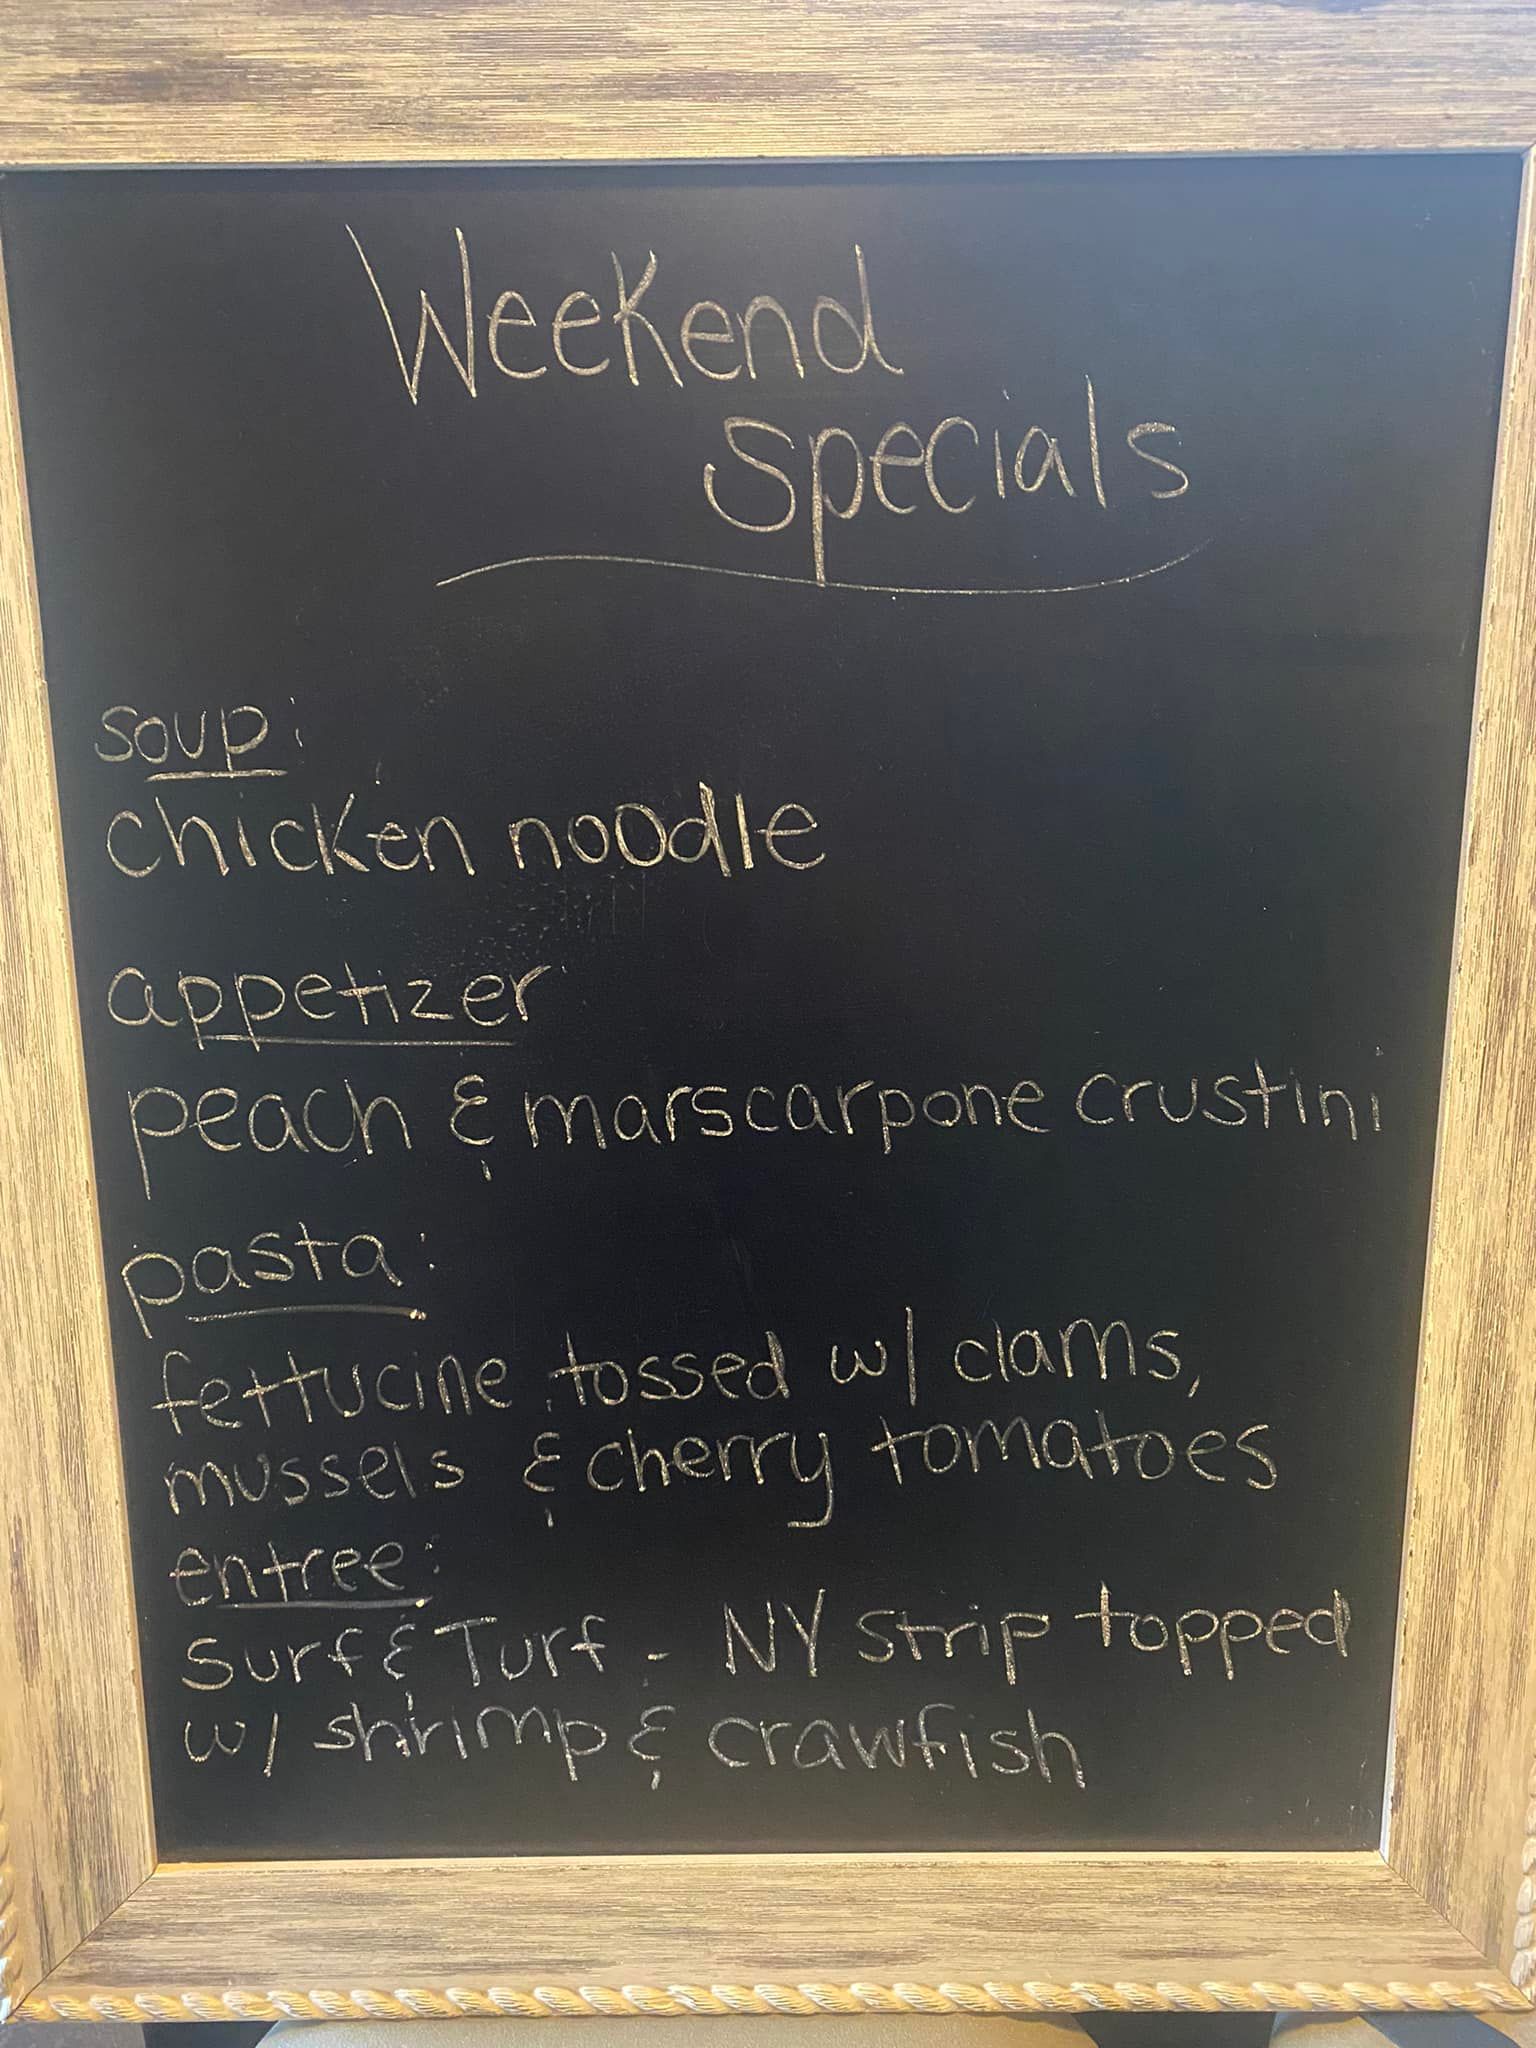 Weekend
Specials
soup:
chicken noodle
appetizer
peach & marscarpone crustini
pasta:
fettucine tossed w/ clams,
mussels & cherry tomatoes
entree:
Surf & Turf - NY strip topped
w/ shrimp & crawfish